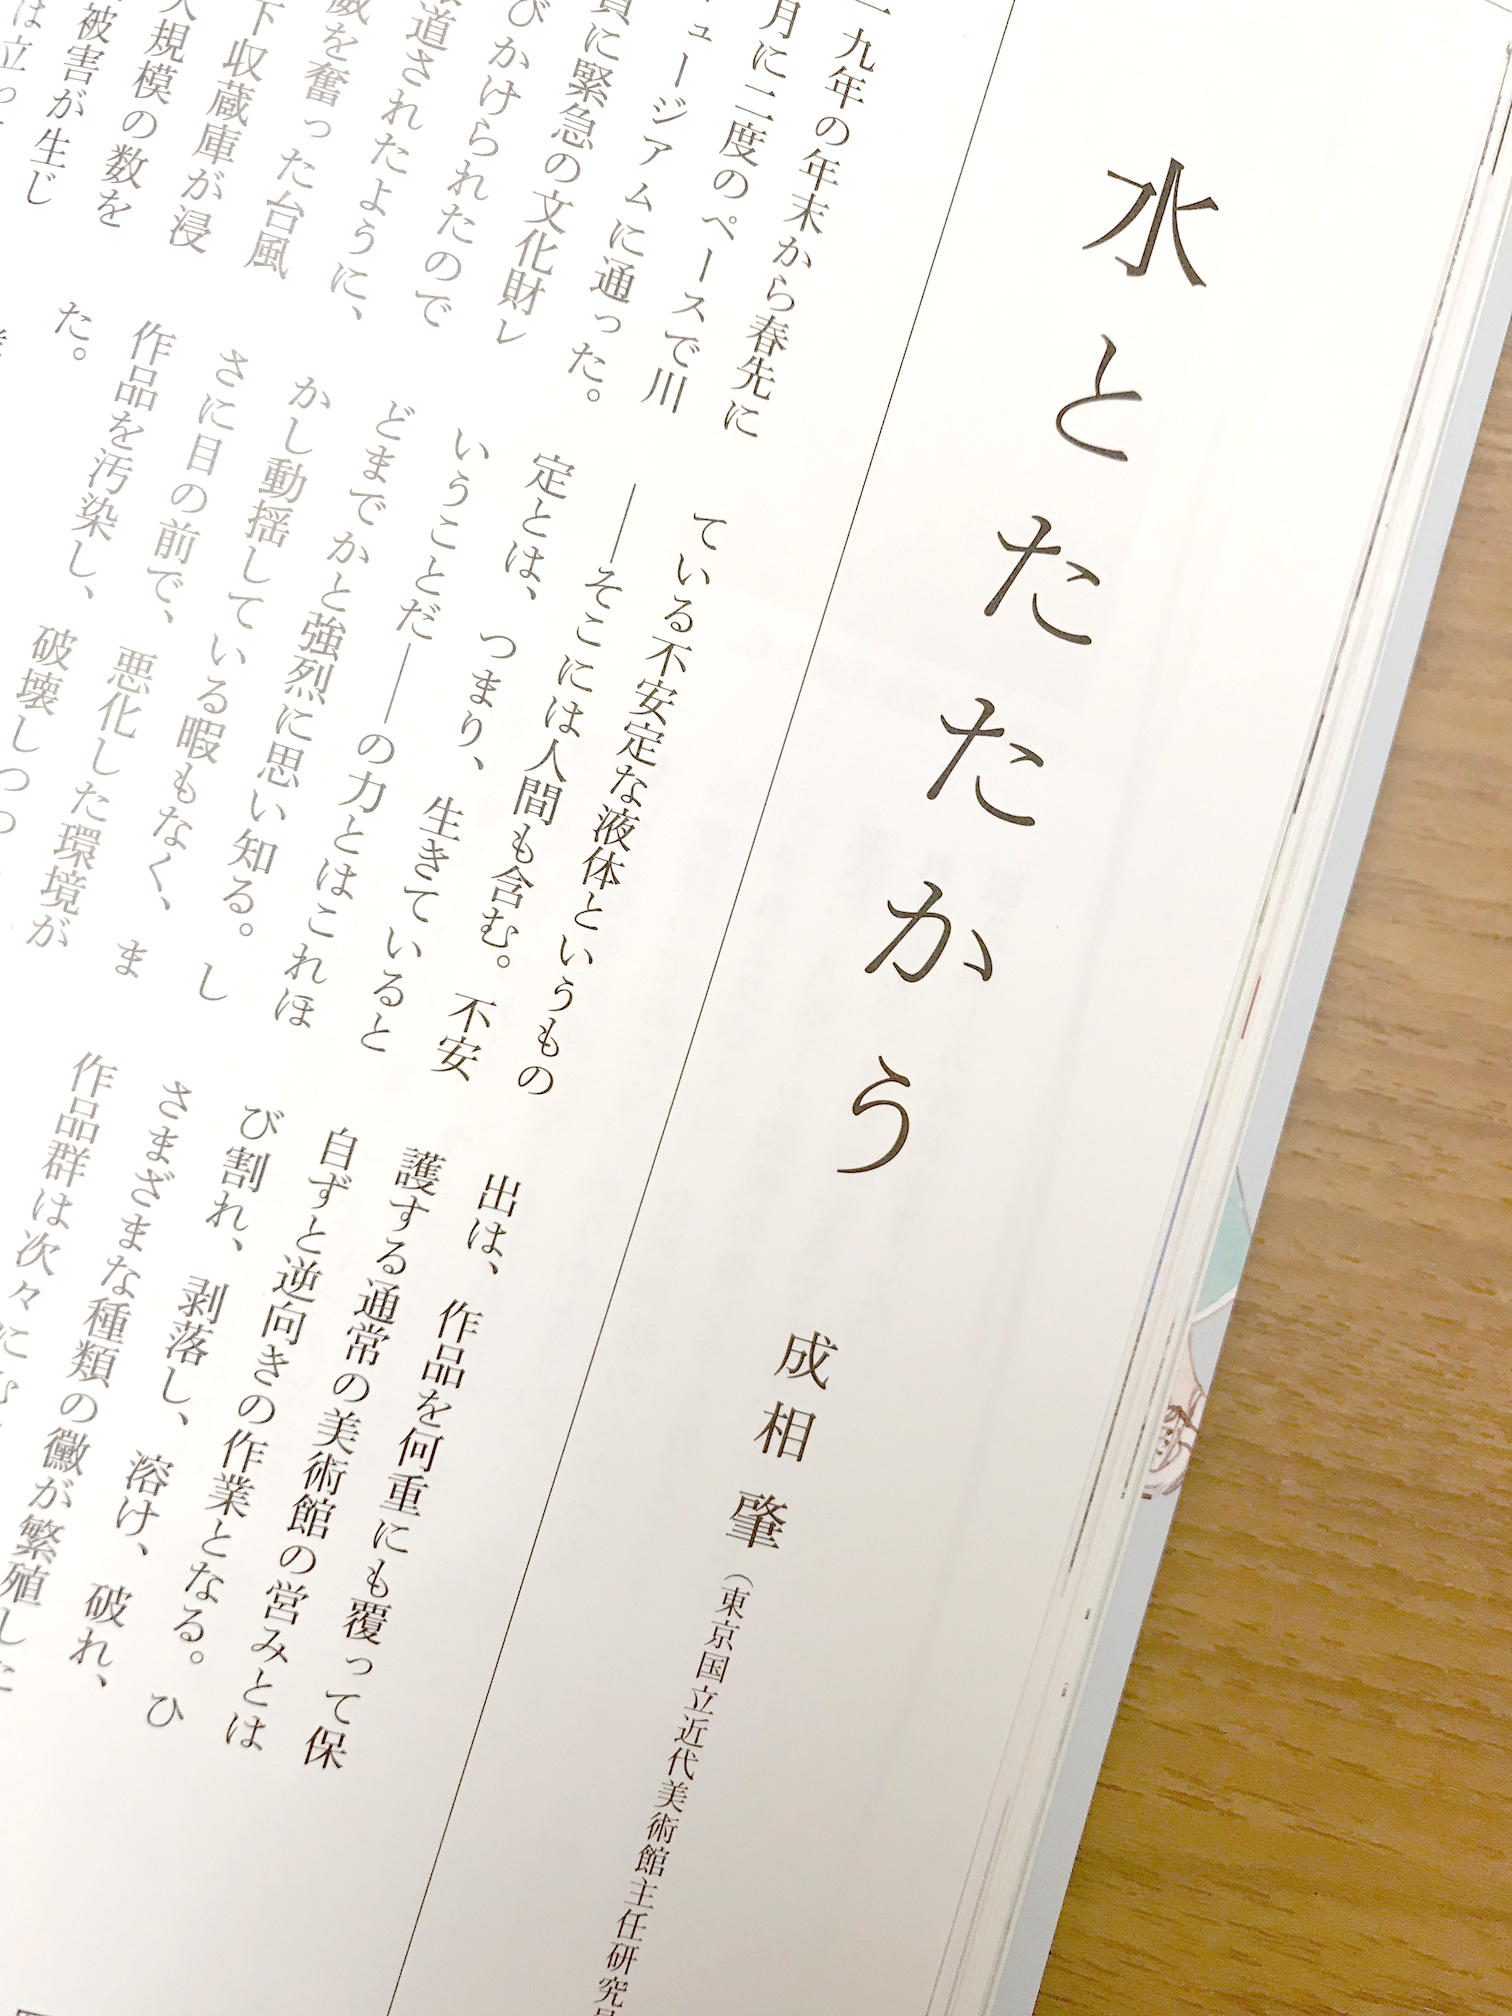 水とたたかう
成相 肇
（東京国立近代美術館主任研究員
一九年の年末から春先に
月に二度のペースで川
ュージアムに通った。
員に緊急の文化財レ
びかけられたので
道されたように、
威を奮った台風
下収蔵庫が浸
大規模の数を
被害が生じ
は立っ
ている不安定な液体というもの
――そこには人間も含む。不安
定とは、つまり、生きていると
いうことだ――の力とはこれほ
どまでかと強烈に思い知る。し
かし動揺している暇もなく、ま
さに目の前で、悪化した環境が
作品を汚染し、破壊しつつ
た。
出は、作品を何重にも覆って保
護する通常の美術館の営みとは
自ずと逆向きの作業となる。ひ
び割れ、剥落し、溶け、破れ、
さまざまな種類の黴が繁殖した
作品群は次々に